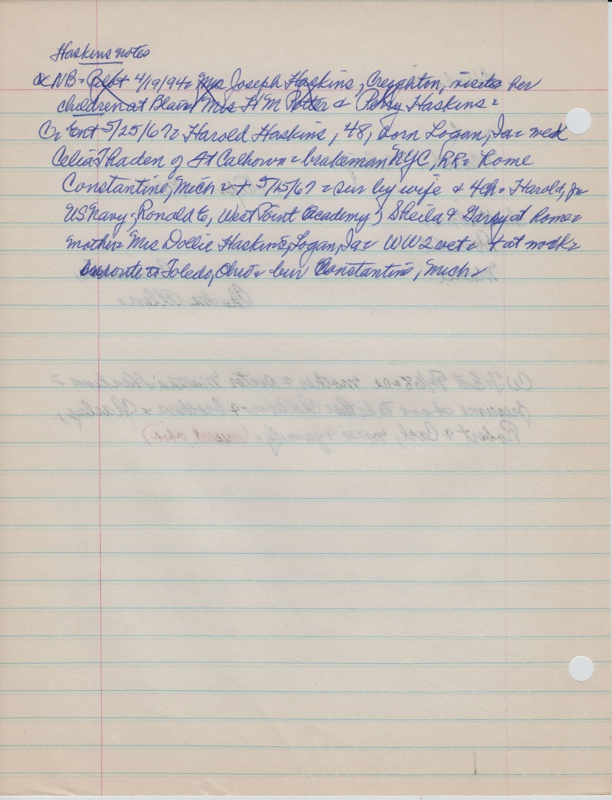 Haskins notes
& NB - 4/19/94 - Mrs Joseph Haskins, Creighton, visits her
children at Blair - Mrs H M Potter & Perry Haskins -
Ent 5/25/67 - Harold Haskins, 48, born Logan, Ia - wed
Celia Thaden of Ft Calhoun - brakeman NYC, RR - Rome
Constantine, Mich - + 5/15/67 - sur by wife & 4 ch - Harold, Jr
US Navy; Ronald E, West Point Academy; Sheila & Garry at home -
mother - Mrs Dollie Haskins, Logan, Ia - WW2 vet - + at work -
enroute to Toledo, Ohio - bur Constantine, Mich -